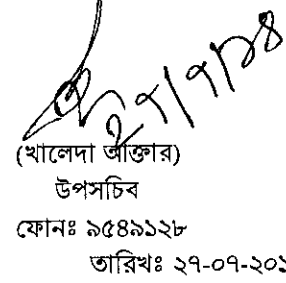 ২৭/৭/১৪
(খালেদা আক্তার)
উপসচিব
ফোনঃ ৯৫৪৯১২৮
তারিখঃ ২৭-০৭-২০১